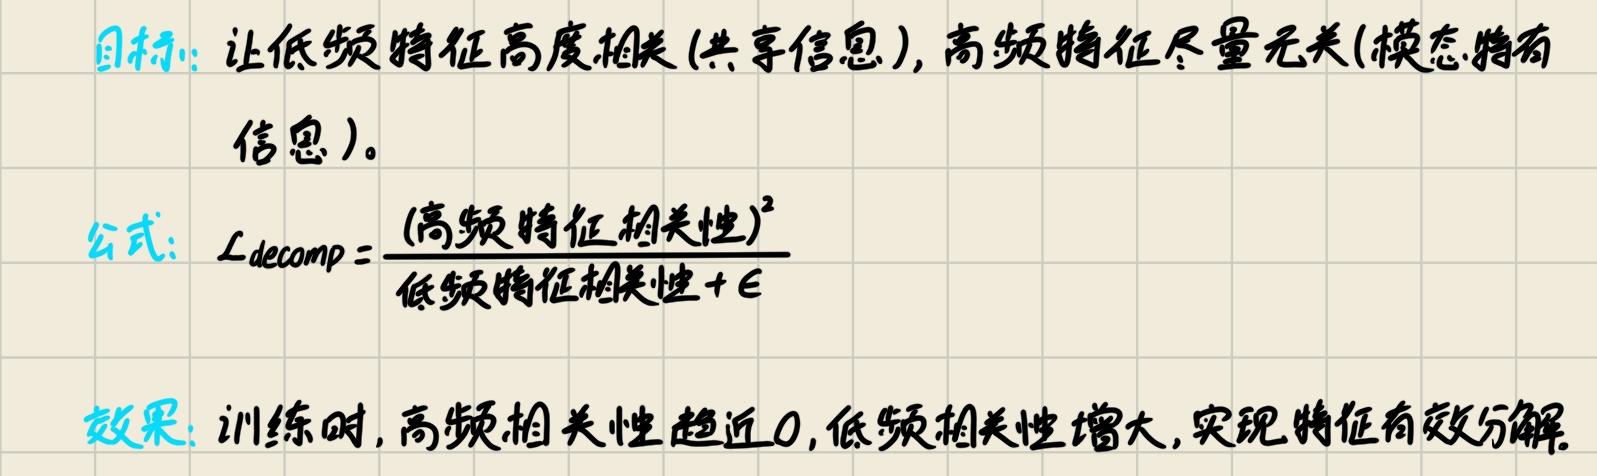 目标: 让低频特征高度相关(共享信息), 高频特征尽量无关(模态特有
信息)。
公式: L decomp = (高频特征相关性)² / 低频特征相关性 + ϵ
效果: 训练时, 高频相关性趋近0, 低频相关性增大, 实现特征有效分解.